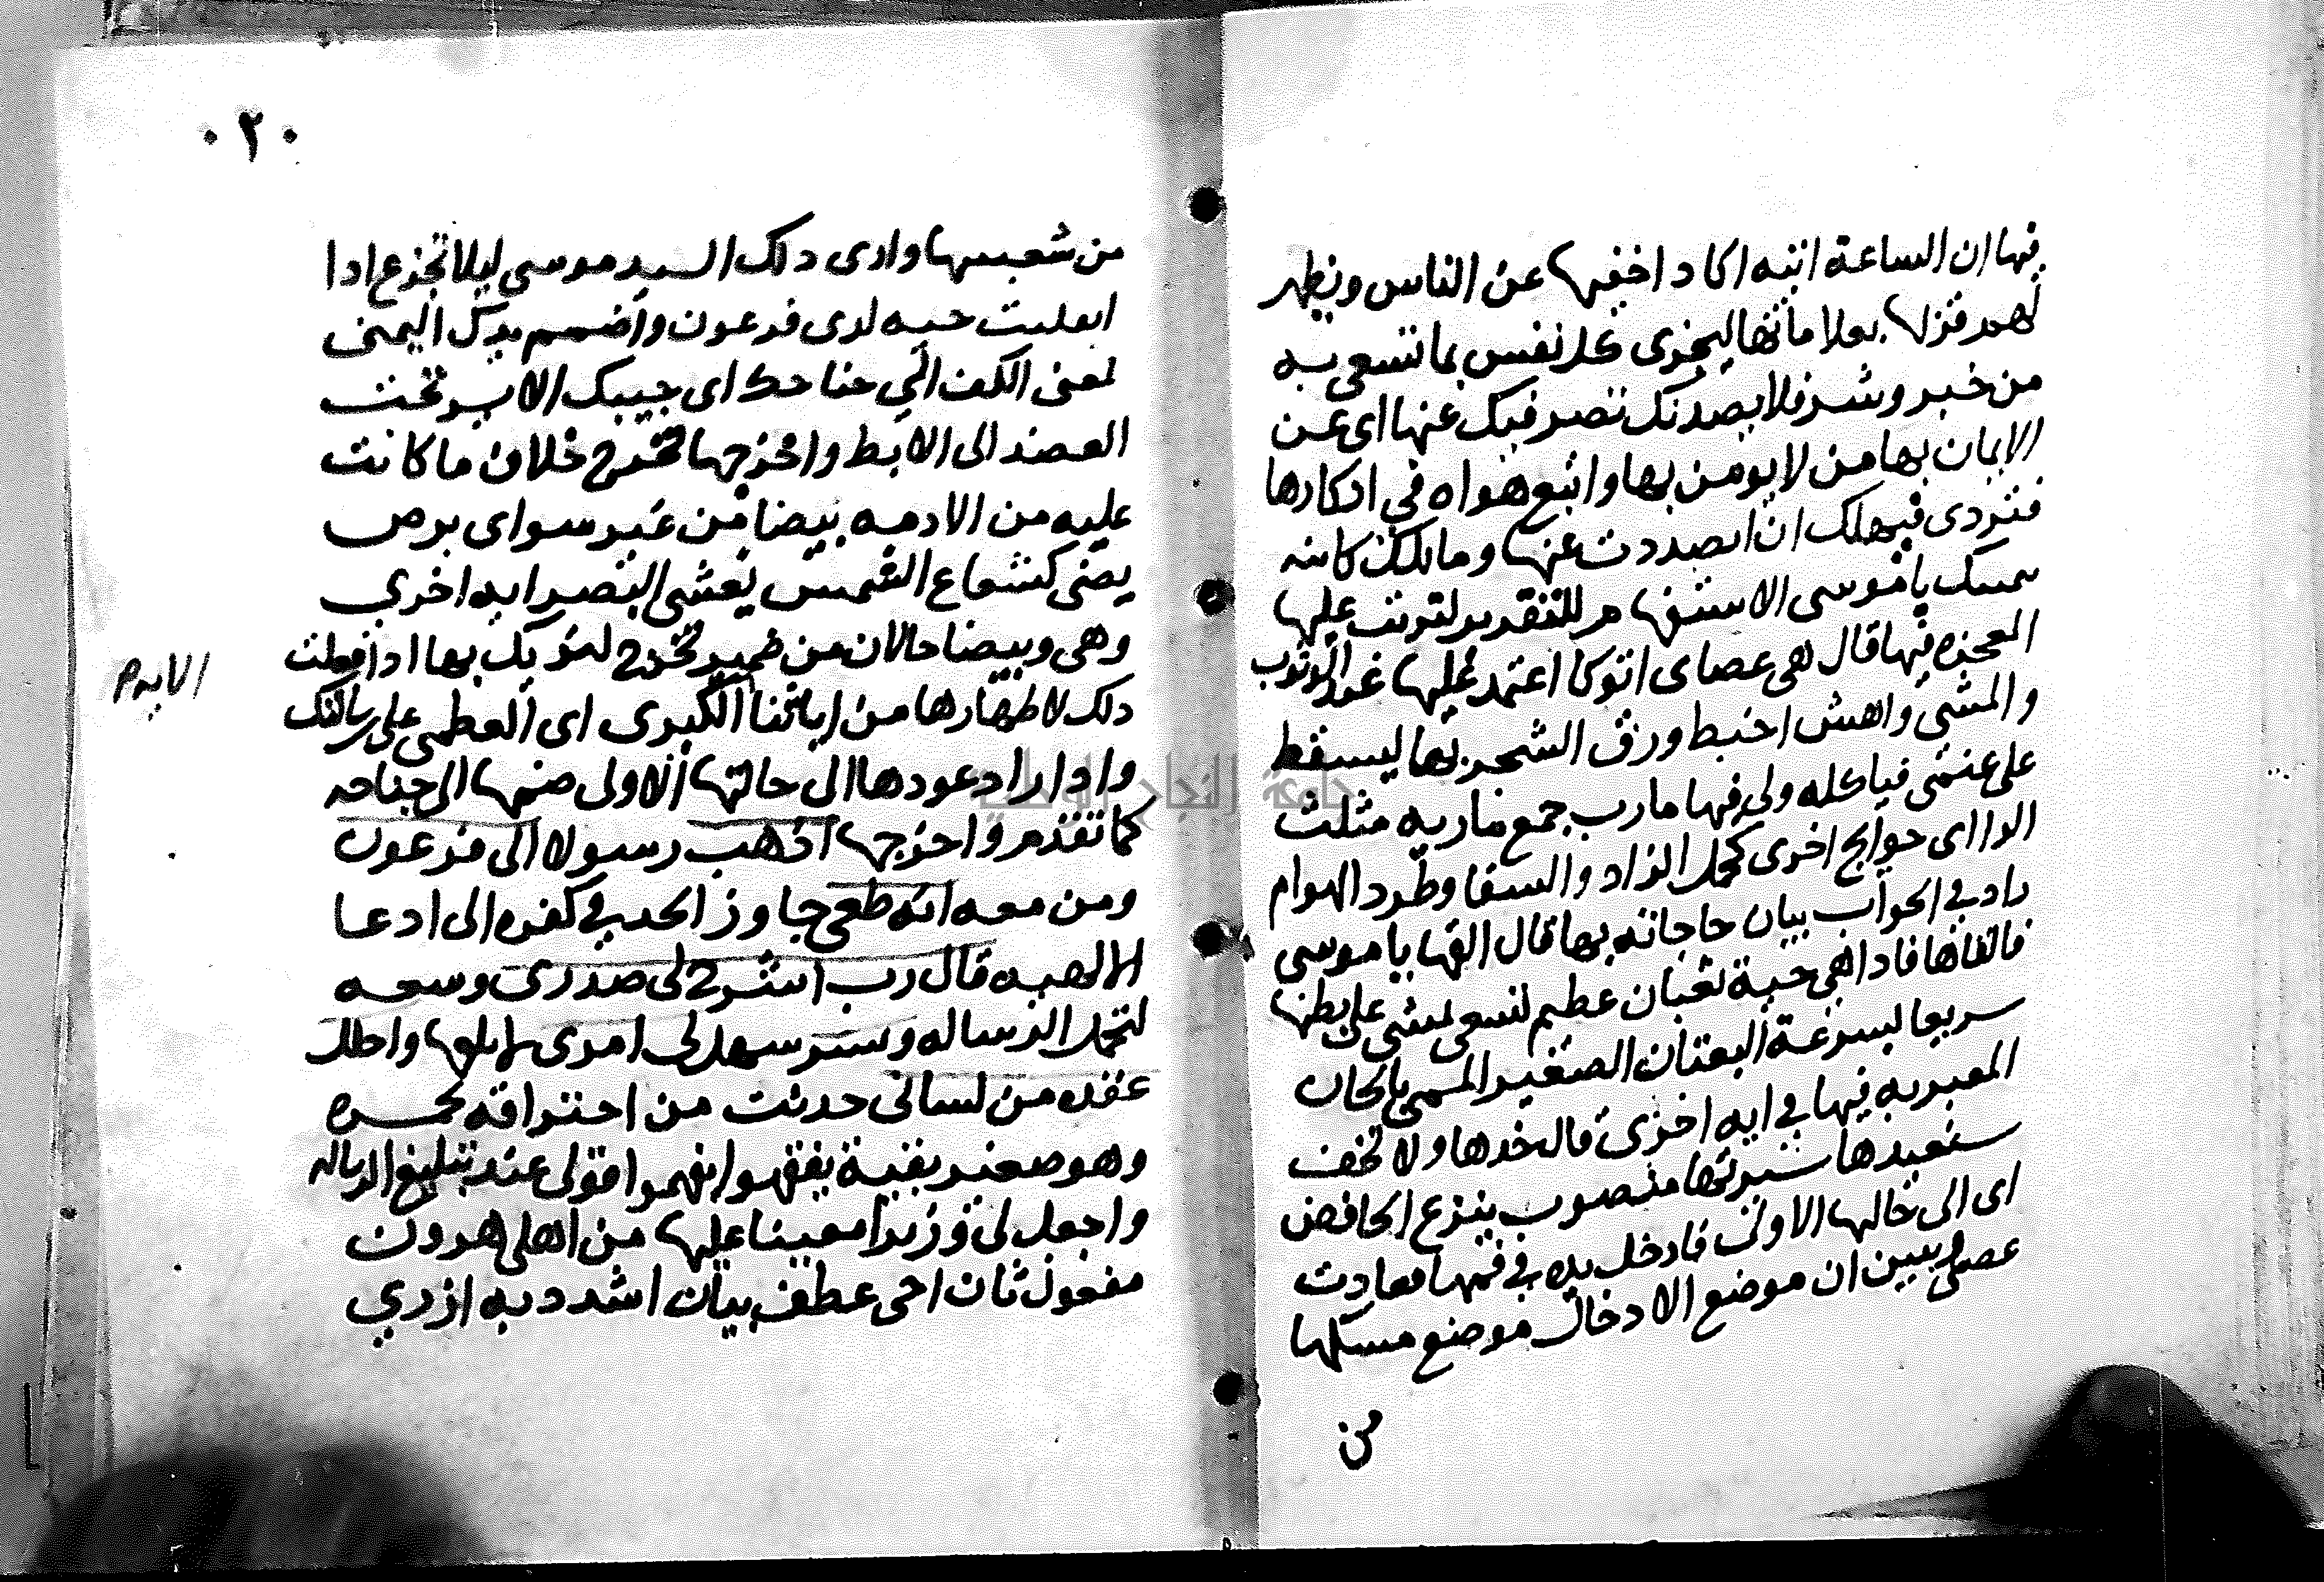 فيها ان الساعة اتيه اكاد اخفيها عن الناس ويظهر
لهم قربها بعلاماتها ليجزى كل نفس بما تسعى به
من خير وشر فلا يصدنك تصرفنك عنها اى عن
الايمان بها من لا يومن بها واتبع هواه في انكارها
فتردى فتهلك ان انصددت عنها وما تلك كاينه
بيمينك يا موسى الاستفهام للتقرير لترتب عليها
المعجزه فيها قال هى عصاى اتوكا اعتمد عليها عند الوثوب
والمشي واهش اخبط ورق الشجر بها ليسقط
على غنمي فياكله ولي فيها مارب جمع ماربه مثلث
الرا اى حوايج اخرى كحمل الزاد والسقا وطرد الهوام
زاد في الجواب بيان حاجاته بها قال القها يا موسى
فالقاها فاذا هي حية ثعبان عظيم تسعى تمشي على بطنها
سريعا بسرعة الثعبان الصغير المسمى بالجان
المعبر به فيها في ايه اخرى قال خذها ولا تخف
سنعيدها سيرتها منصوب بنزع الخافض
اى الى حالها الاولى فادخل يده في فمها فعادت
عصى وتبين ان موضع الادخال موضع مسكها
من
٠٢٠
من شعبيها وارى ذلك السيد موسى ليلا تجزع اذا
انقلبت حيه لدى فرعون واضمم يدك اليمنى
بمعنى الكف الي جناحك اى جيبك الايسر تحت
العضد الى الابط واخرجها تخرج خلاف ما كانت
عليه من الادمه بيضا من غير سو اى برص
يضى كشعاع الشمس تعشى البصر ايه اخري
وهى وبيضا حالان من ضمير تخرج لنريك بها اذا فعلت
ذلك لاظهارها من اياتنا الكبرى اى العظمى على رسالتك
واذا راد عودها الى حالتها الاولى ضمها الى جناحه
كما تقدم واخرجها اذهب رسولا الى فرعون
ومن معه انه طغى جاوز الحد في كفره الى ادعا
الالهيه قال رب اشرح لى صدرى وسعه
لتحمل الرساله ويسر سهل لى امرى لابلغها واحلل
عقده من لسانى حدثت من احتراقه بجمره
وهو صغير بفيه يفقهوا يفهموا قولى عند تبليغ الرساله
واجعل لى وزيرا معينا عليها من اهلى هرون
مفعول ثان اخى عطف بيان اشدد به ازري